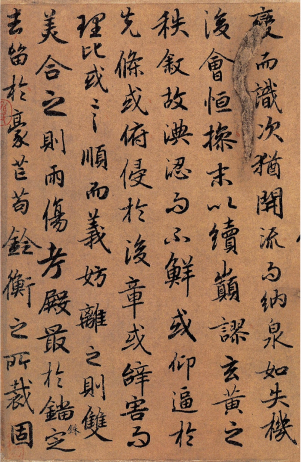 變而識次猶開流而納泉如失機
後會恒操末以續巔謬玄黃之
秩敘故淟涊而不鮮或仰逼於
先條或俯侵於後章或辭害而
理比或言順而義妨離之則雙
美合之則兩傷考殿最於錙銖定
去留於毫芒苟銓衡之所裁固